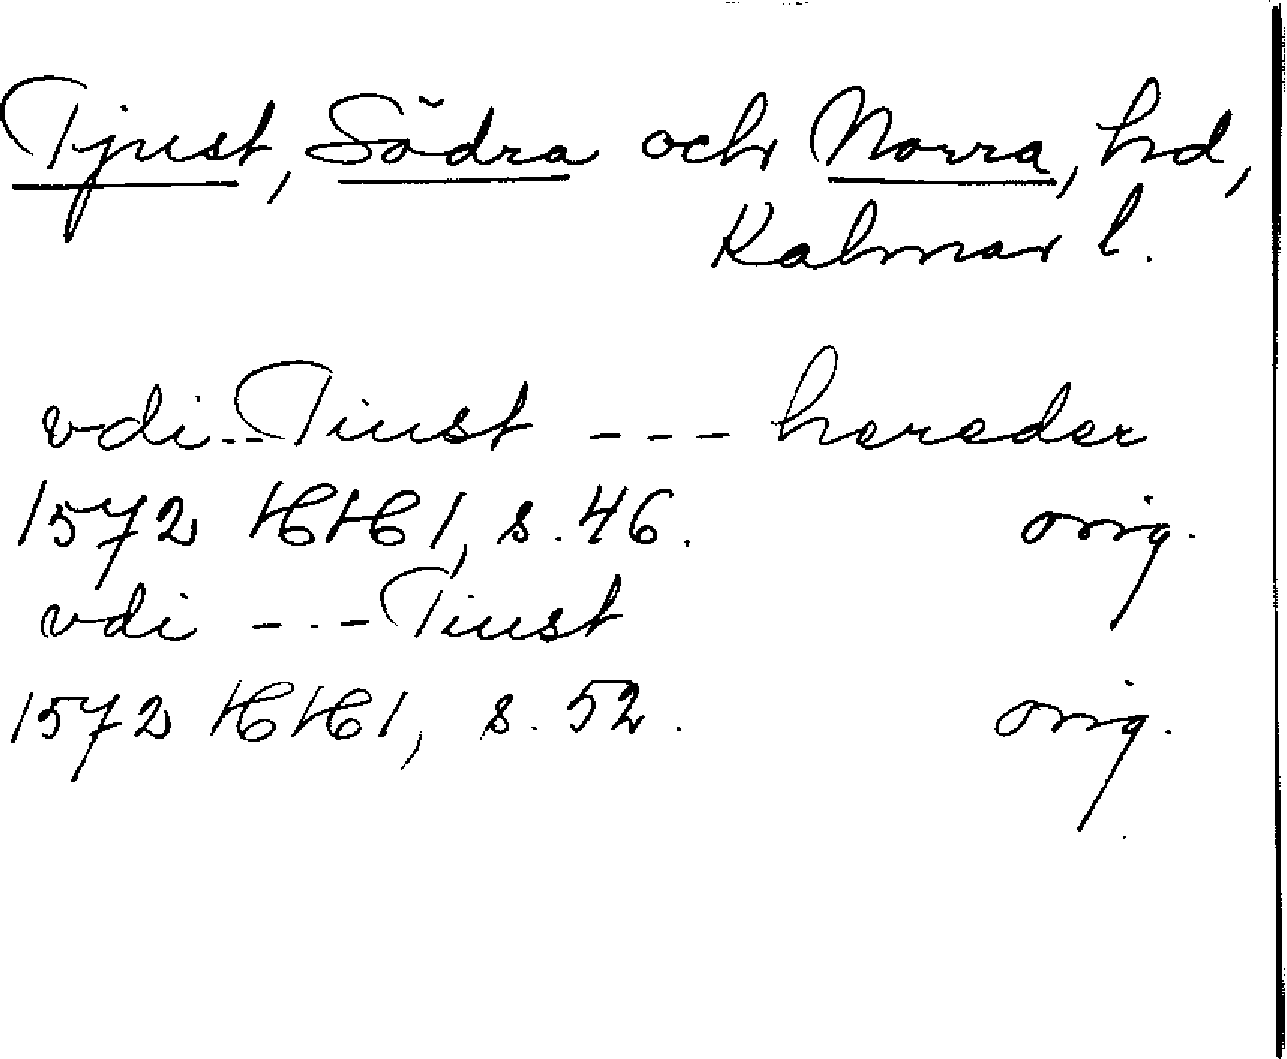 Tjust, Södra och Norra, hd,
Kalmar l.
vdi -- Tiust --- hereder
1572 HH 1, s. 46. orig.
vdi --- Tiust
1572 HH 1, s. 52. orig.